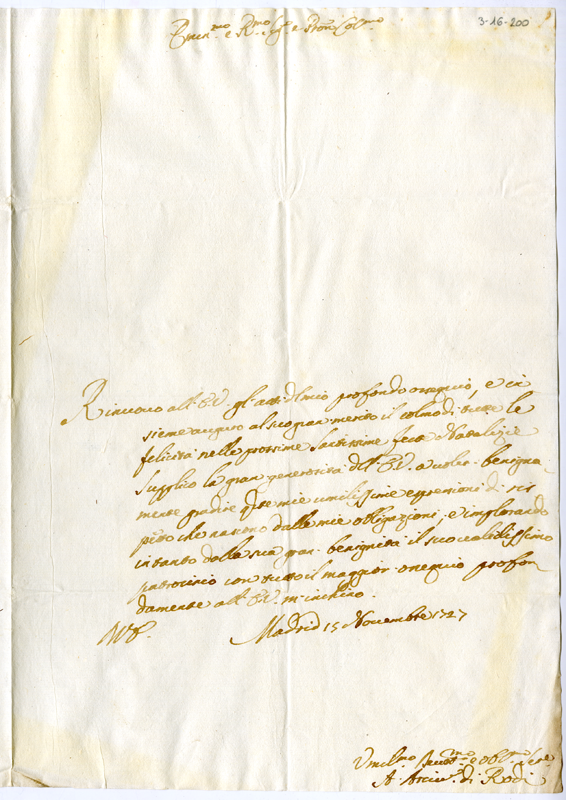 3-16-200
Emin.mo e R.mo Sig.r e Pron Col.mo
Rinuovo all'E.V. gl'atti del mio profondo ossequio, e in
sieme auguro al suo gran merito il colmo di tutte le
felicità nelle prossime Santissime feste Natalizie
Supplico la gran generosità dell'E.V. a voler benigna
mente gradire queste mie umilissime espressioni di ris
petto che nascono dalle mie obligazioni, e implorando
intanto dalla sua gran benignità il suo validissimo
patrocinio con tutto il maggior ossequio profon
damente all'E.V. m'inchino.
Madrid 15 Novembre 1727
Umil.mo Devot.mo e Obb.mo Ser.re
A. Arciv.o di Rodi